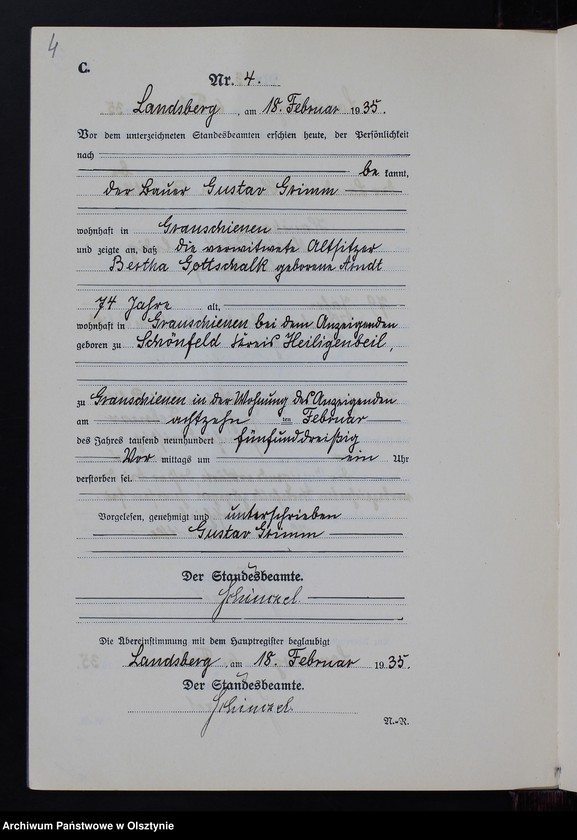 4
C.
Nr. 4.
Landsberg, am 18. Februar 1935.
Vor dem unterzeichneten Standesbeamten erschien heute, der Persönlichkeit
nach
be kannt,
der Bauer Gustav Grimm
wohnhaft in Grauschienen
und zeigte an, daß die verwitwete Altsitzer
Bertha Gottschalk geborene Arndt
74 Jahre alt,
wohnhaft in Grauschienen bei dem Anzeigenden
geboren zu Schönfeld Kreis Heiligenbeil,
zu Grauschienen in der Wohnung des Anzeigenden
am achtzehn ten Februar
des Jahres tausend neunhundert fünfunddreißig
Vor mittags um ein Uhr
verstorben sei.
Vorgelesen, genehmigt und unterschrieben
Gustav Grimm
Der Standesbeamte.
Die Übereinstimmung mit dem Hauptregister beglaubigt
Landsberg, am 18. Februar 1935.
Der Standesbeamte.
N.-R.
Archiwum Państwowe w Olsztynie